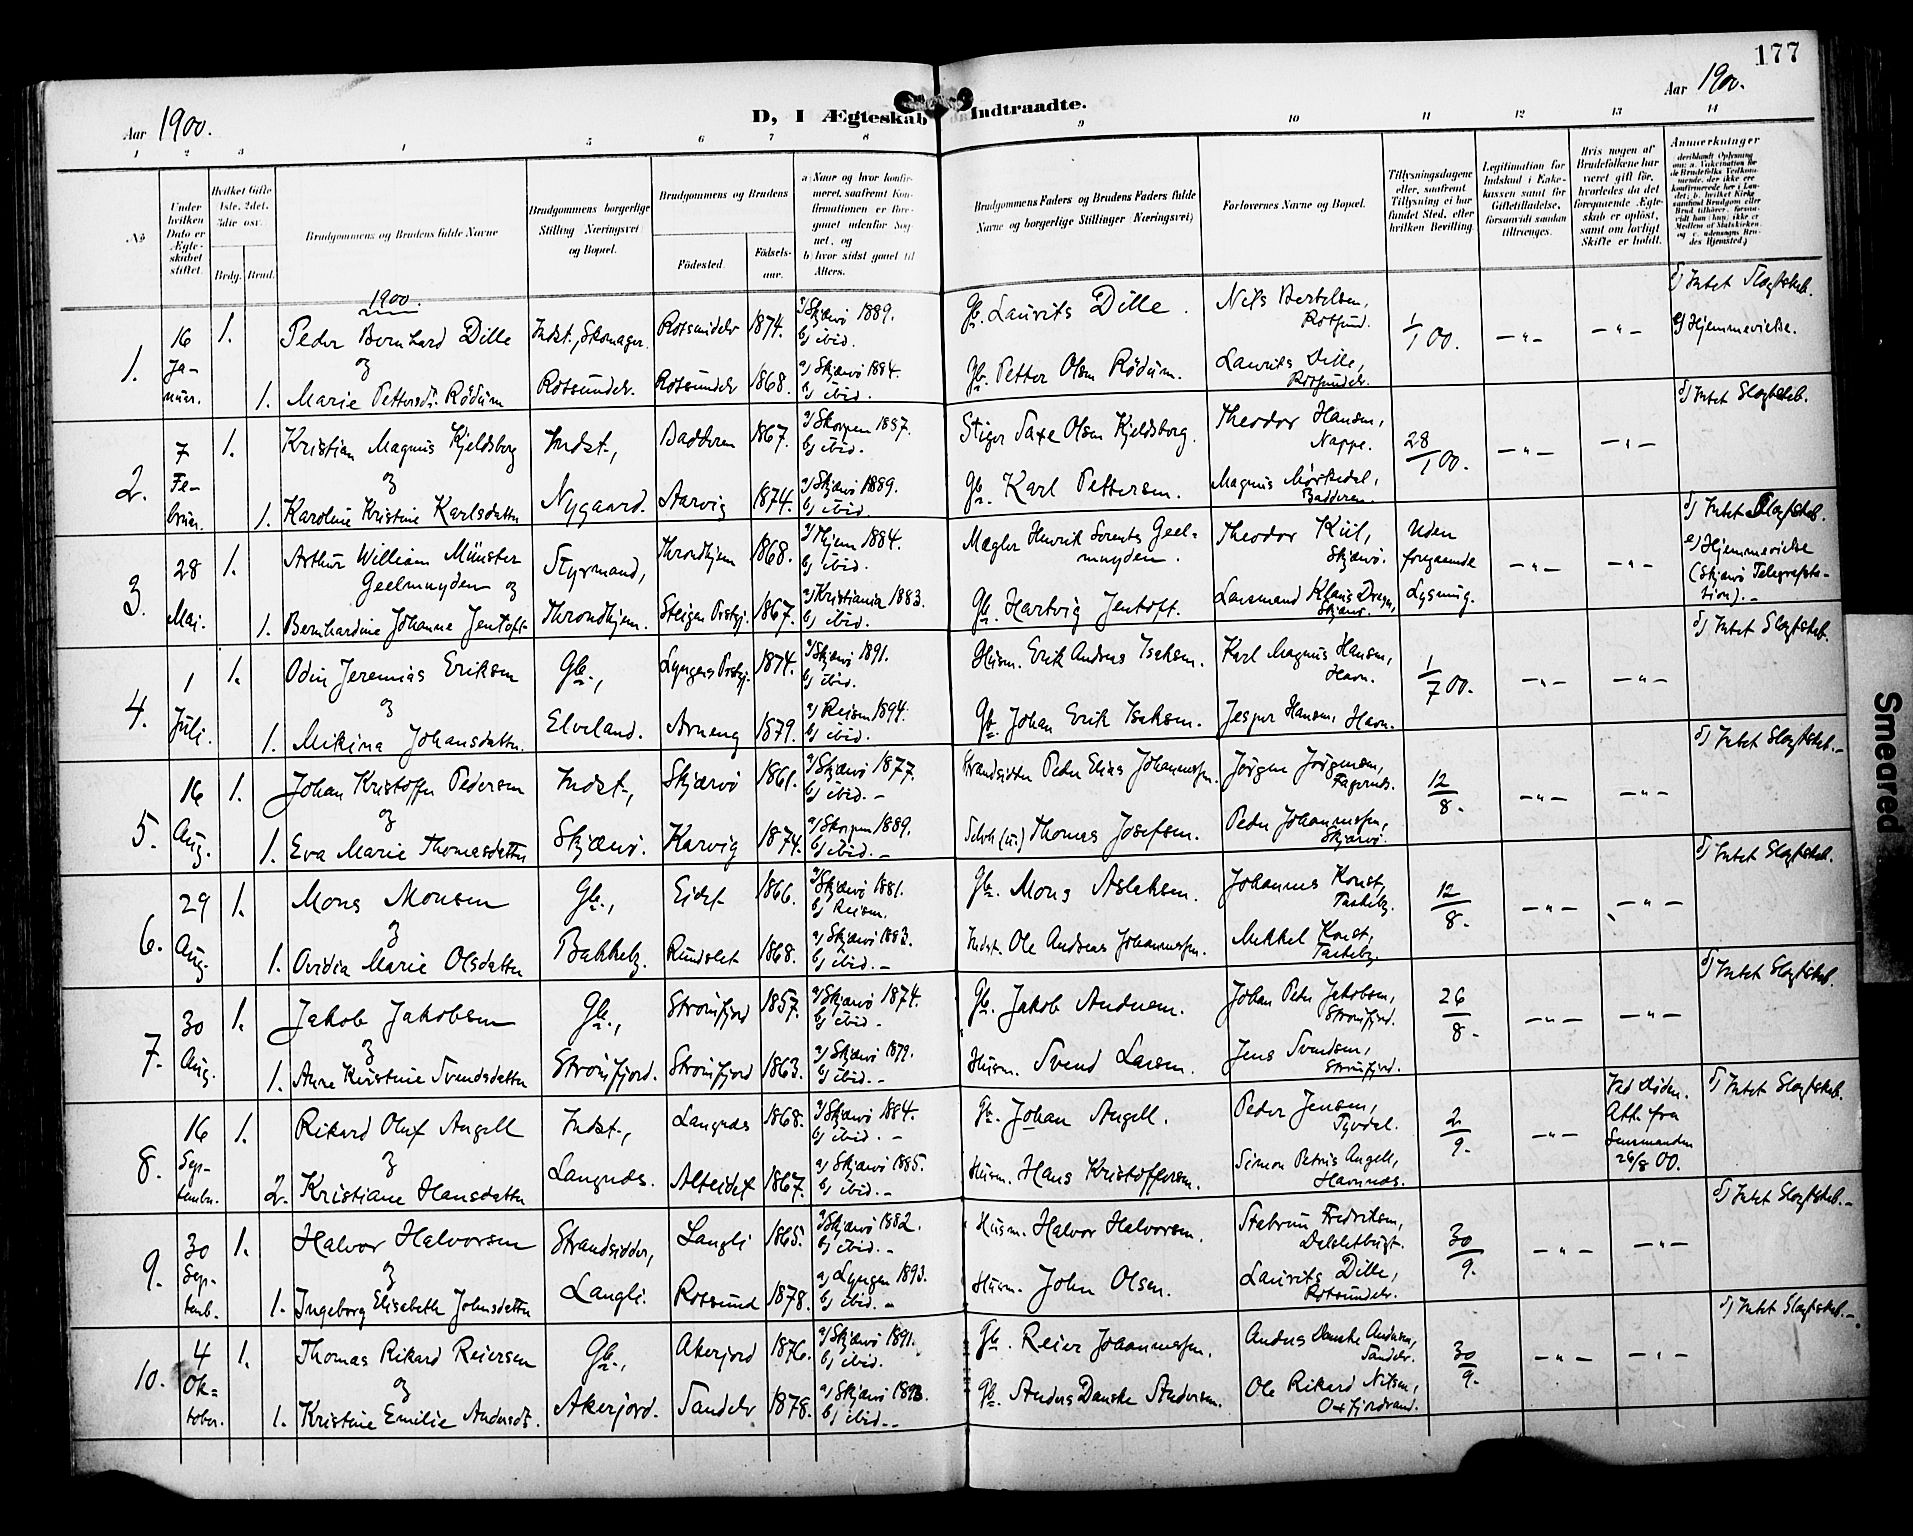 177
Aar 1900.
D, I Ægteskab Indtraadte.
Aar 1900.
1 2 3 4 5 6 7 8 9 10 11 12 13 14
No
Under hvilken Dato er Ægteskabet stiftet.
Hvilket Gifte 1ste, 2det, 3die osv.
Brdg. Brud.
Brudgommens og Brudens fulde Navne
Brudgommens borgerlige Stilling (Næringsvei) og Bopæl.
Brudgommens og Brudens
Födested. Födselsaar.
a) Naar og hvor konfirmeret, saafremt Konfirmationen er foregaaet udenfor Sognet, og
b) hvor sidst gaaet til Alters.
Brudgommens Faders og Brudens Faders fulde Navne og borgerlige Stillinger (Næringsvei)
Forlovernes Navne og Bopæl.
Tillysningsdagene eller, saafremt Tillysning ei har fundet Sted, efter hvilken Bevilling.
Legitimation for Indskud i Enkekassen samt for Giftetilladelse, forsaavidt saadan tiltrænges.
Hvis nogen af Brudefolkene har været gift för, hvorledes da det foregaaende Ægteskab er oplöst, samt om lovligt Skifte er holdt.
Anmerkninger
1900.
1. 16 Januar. 1. Peder Bernhard Dille Indst., Skomager. Rotsundelv 1874. a) Skjærvö 1889. b) ibid. Gbr. Laurits Dille. Nils Bertelsen, Rotsund. 1/1 00. —„— —„— d) Intet Slægtskab. e) Hjemmevielse.
og
1. Marie Pettersdtr. Rödum Rotsundelv. Rotsundelv 1868. a) Skjærvö 1884. b) ibid. Gbr. Petter Olsen Rödum. Laurits Dille, Rotsundelv.
2. 7 Februar. 1. Kristian Magnus Kjeldsberg Indst., Badderen 1867. b) ibid. Stiger Saxe Olsen Kjeldsberg. Theodor Hansen, Nappe. 28/1 00. —„— —„— d) Intet Slægtskab.
og
1. Karoline Kristine Karlsdatter Nygaard. Aarvig 1874. a) Skjærvö 1889. b) ibid. Gbr. Karl Pettersen. Magnus Mörkedal, Badderen.
3. 28 Mai. 1. Arthur William Münster Geelmuyden og Styrmand, Throndhjem 1868. a) Thjem 1884. b) ibid. Mægler Henrik Geelmuyden. Theodor Kiil, Skjærvö. Uden foregaaende Lysning. —„— —„— d) Intet Slægtskab. e) Hjemmevielse (Skjærvö Telegrafstation). —
1. Bernhardine Johanne Jentoft Throndhjem. Steigen Præstgj. 1867. a) Kristiania 1883. b) ibid. Gbr. Hartvig Jentoft. Lensmand Klaus Dreyer, Skjærvö.
4. 1 Juli. 1. Odin Jeremias Eriksen Gbr., Lyngens Præstgj. 1874. a) Skjærvö 1891. b) ibid. Husm. Erik Andreas Isaksen. Karl Magnus Hansen, Havn. 1/7 00. —„— —„— d) Intet Slægtskab.
og
1. Mikina Johansdatter. Elveland. Arneng 1879. a) Reisen 1894. b) ibid. Gbr. Johan Erik Isaksen. Jesper Hansen, Havn.
5. 16 Aug. 1. Johan Kristoffer Pedersen Indst., Skjærvö 1861. a) Skjærvö 1877. b) ibid. — Strandsidder Peder Elias Johannessen. Jörgen Jörgensen, Fagernes. 12/8. —„— —„— d) Intet Slægtskab. —
og
1. Eva Marie Thomasdatter Skjærvö. Karvig 1874. b) ibid. — Thomas Josefsen. Peder Johannessen, Skjærvö.
6. 29 Aug. 1. Mons Monsen Gbr., Eidet 1866. a) Skjærvö 1881. b) Reisen. Gbr. Mons Aslaksen. Johannes Konst, Taskeby. 12/8. —„— —„— d) Intet Slægtskab.
og
1. Ovidia Marie Olsdatter Bakkeby. Kundslet 1868. a) Skjærvö 1883. b) ibid. — Indst. Ole Andreas Johannessen. Mikkel Konst, Taskeby.
7. 30 Aug. 1. Jakob Jakobsen Gbr., Strömfjord 1857. a) Skjærvö 1874. b) ibid. — Gbr. Jakob Andersen. Johan Peder Jakobsen, Strömfjord. 26/8. —„— —„— d) Intet Slægtskab.
og
1. Anne Kristine Svendsdatter Strömfjord. Strömfjord 1863. a) Skjærvö 1879. b) ibid. — Husm. Svend Larsen. Jens Svendsen, Strömfjord.
8. 16 September. 1. Rikard Oluf Angell Indst., Langnæs 1868. a) Skjærvö 1884. b) ibid. — Gbr. Johan Angell. Peder Jensen, Tyvdal. 2/9. —„— Ved Döden. Att. fra Lensmanden 26/8 00. d) Intet Slægtskab.
og
2. Kristiane Hansdatter Langnæs. Alteidet 1867. a) Skjærvö 1885. b) ibid. — Husm. Hans Kristoffersen. Simon Petrus Angell, Havnnæs.
9. 30 Septemb. 1. Halvor Halvorsen Strandsidder, Langli 1865. a) Skjærvö 1882. b) ibid. — Husm. Halvor Halvorsen. Fredriksen, 30/9. —„— —„— d) Intet Slægtskab. —
og
1. Ingeborg Elisabeth Johnsdatter Langli. Rotsund 1878. a) Lyngen 1893. b) ibid. — Husm. John Olsen. Laurits Dille, Rotsundelv.
10. 4 Oktober. 1. Thomas Rikard Reiersen Gbr., Akerjord 1876. a) Skjærvö 1891. b) ibid. Gbr. Reier Johannessen. Anders Danske Andersen, Sandelv. 30/9. —„— —„— d) Intet Slægtskab. —
og
1. Kristine Emilie Andersdtr. Akerjord. Sandelv 1878. a) Skjærvö 1893. b) ibid. — Gbr. Anders Danske Andersen. Ole Rikard Nilsen, Oxfjordvand.
Smeared